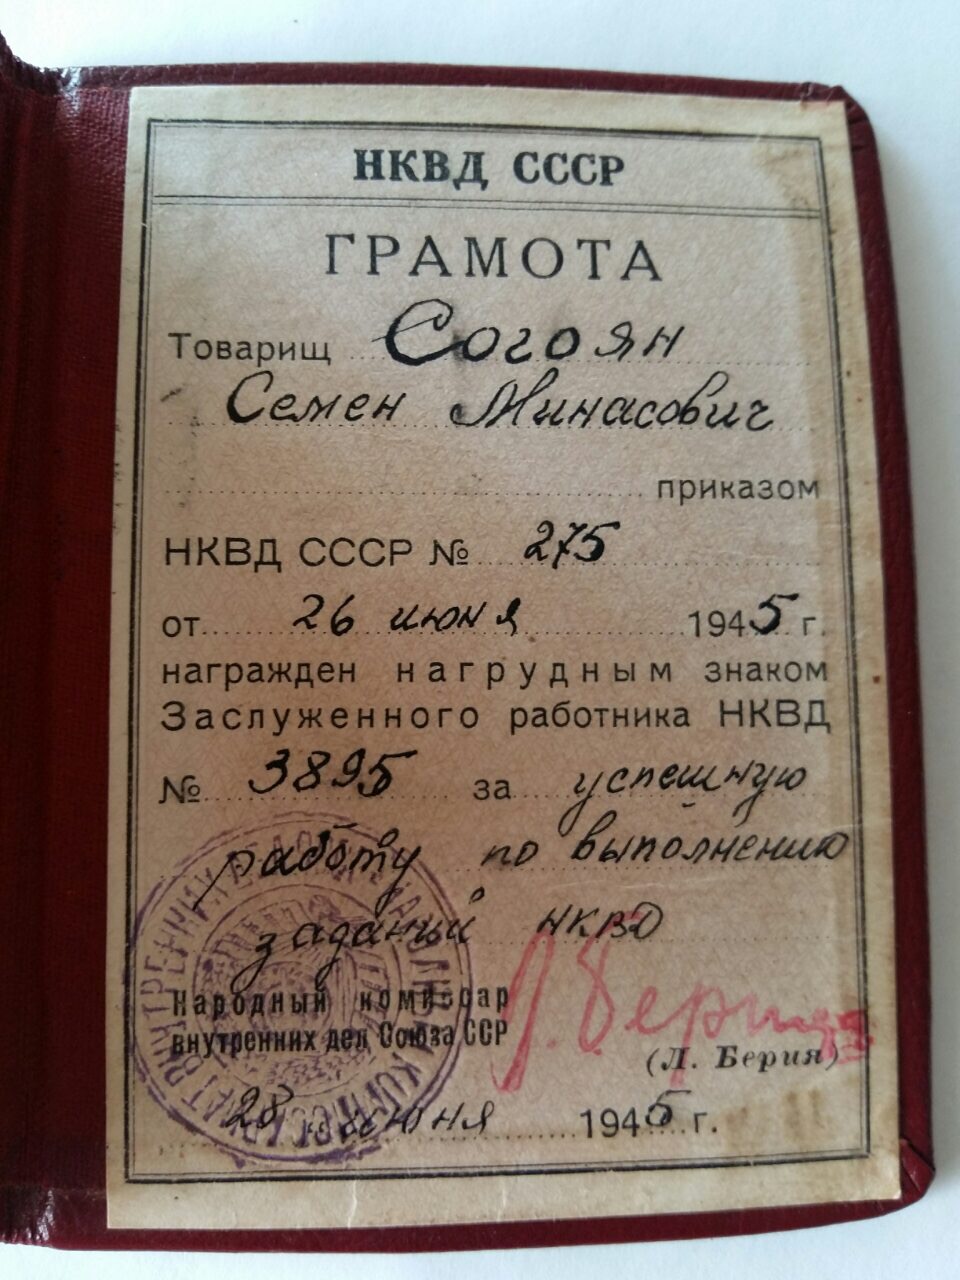 НКВД СССР
ГРАМОТА
Товарищ Согоян
Семен Минасович
приказом
НКВД СССР № 275
от 26 июня 1945 г.
награжден нагрудным знаком
Заслуженного работника НКВД
№ 3895 за успешную
работу по выполнению
заданий НКВД
Народный комиссар
внутренних дел Союза ССР
Л. Берия
(Л. Берия)
28 июня 1945 г.